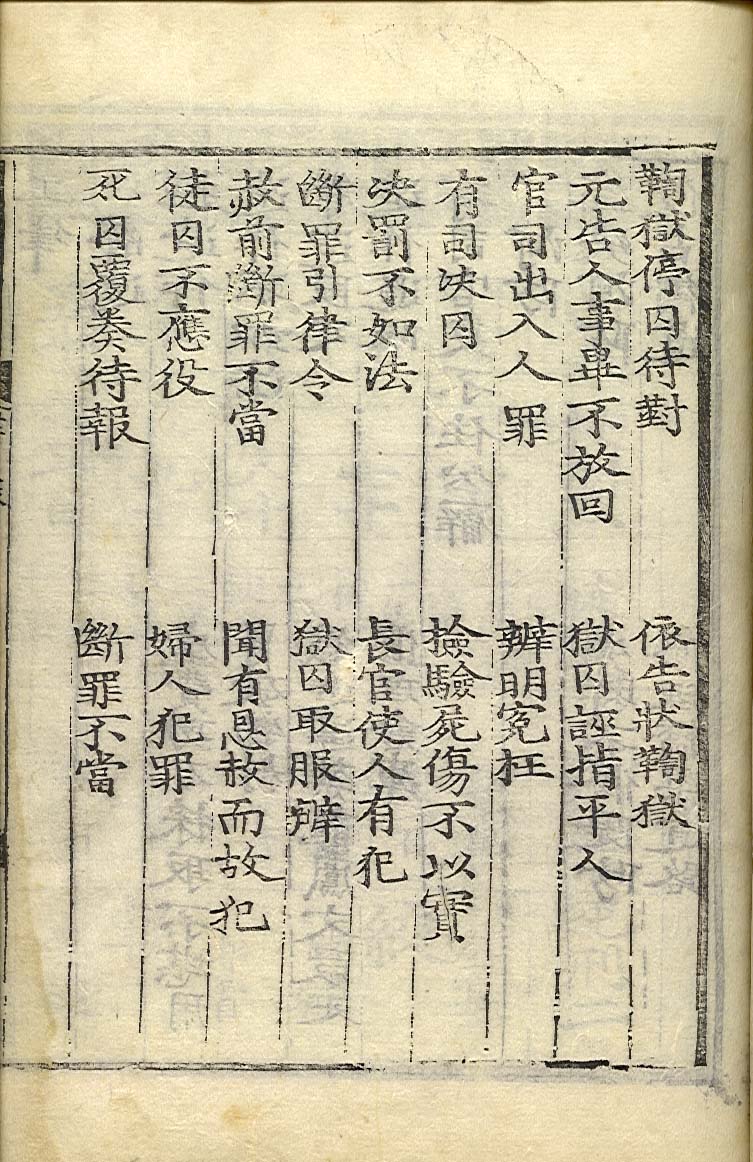 鞫獄停囚待對　依告狀鞫獄
元告人事畢不放回　獄囚誣指平人
官司出入人罪　辨明冤枉
有司决囚　撿驗屍傷不以實
决罰不如法　長官使人有犯
斷罪引律令　獄囚取服辨
赦前斷罪不當　聞有恩赦而故犯
徒囚不應役　婦人犯罪
死囚覆奏待報　斷罪不當